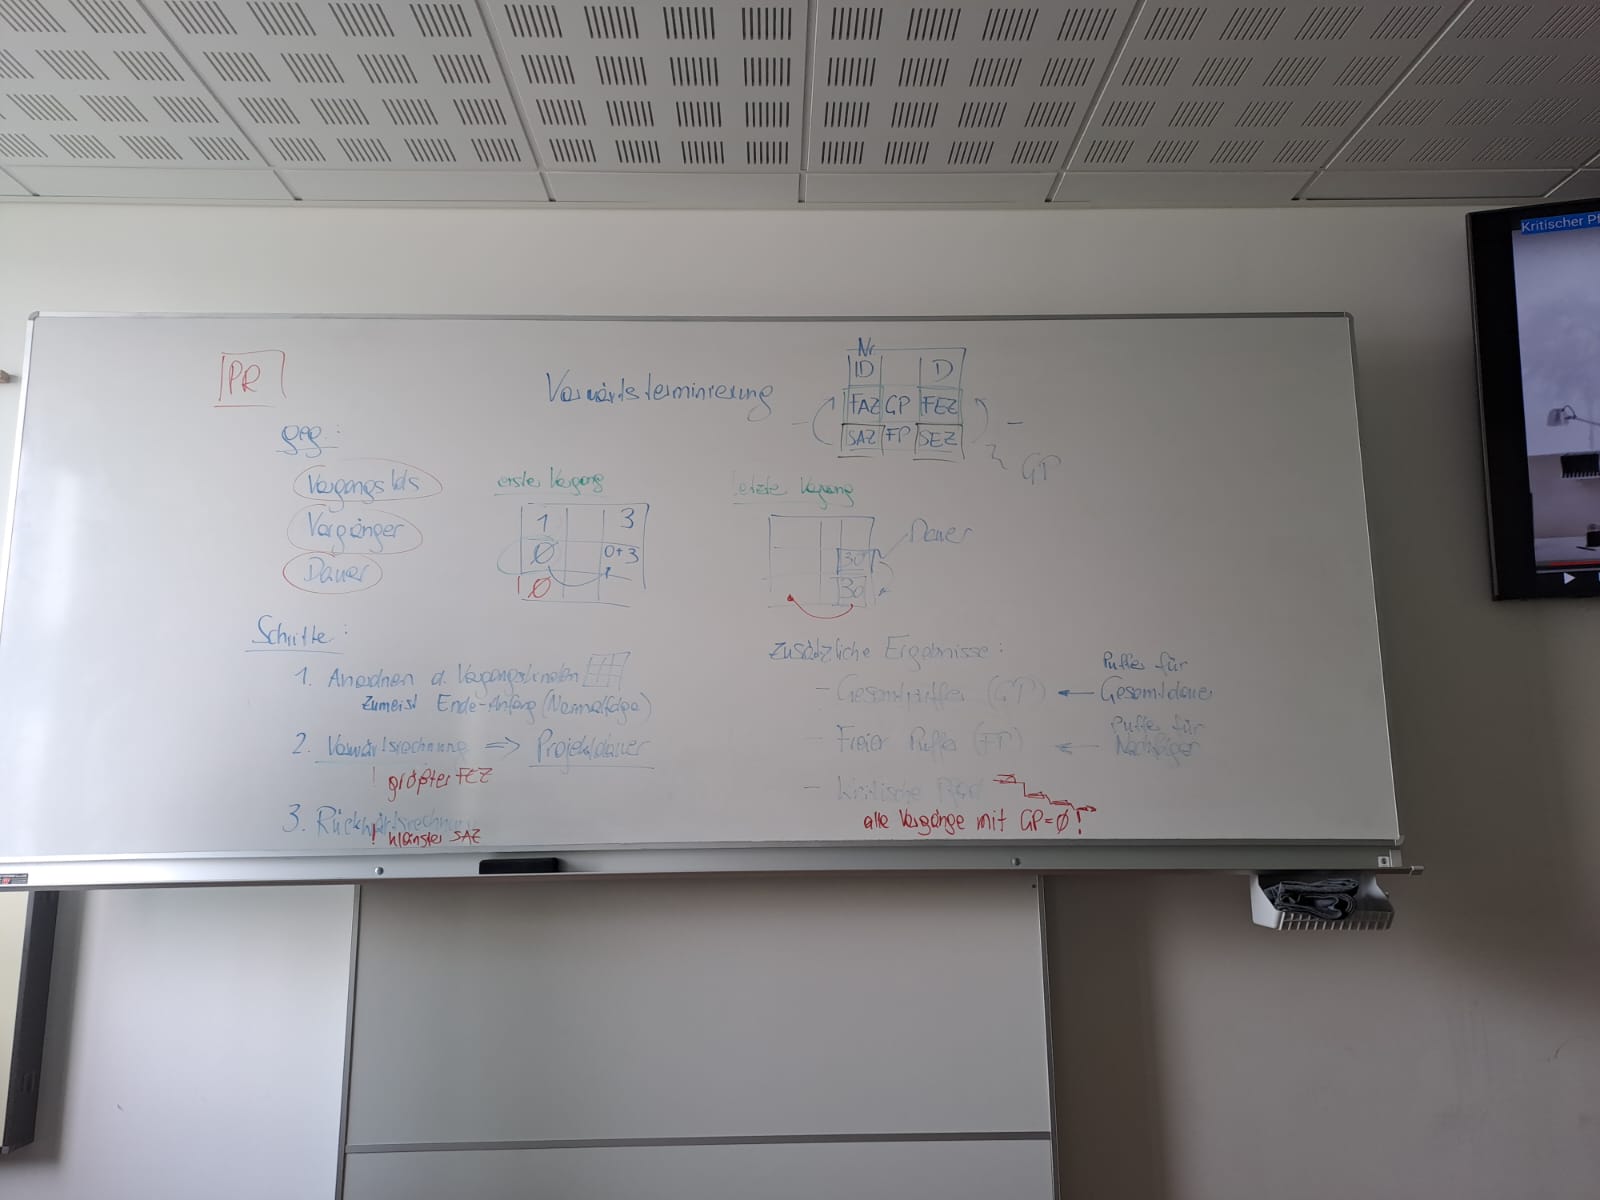 PR
Vorwärtsterminierung
Nr
ID D
FAZ GP FEZ
SAZ FP SEZ
GP
geg.:
Vorgangs Ids
Vorgänger
Dauer
erster Vorgang
1 3
0 0+3
0
letzte Vorgang
Dauer
30
30
Schritte:
1. Anordnen d. Vorgangsknoten
zumeist Ende-Anfang (Normalfolge)
2. Vorwärtsrechnung => Projektdauer
! größter FEZ
3. Rückwärtsrechnung
! kleinster SAZ
Zusätzliche Ergebnisse:
- Gesamtpuffer (GP) ← Puffer für Gesamtdauer
- Freier Puffer (FP) ← Puffer für Nachfolger
- Kritische Pfad
alle Vorgänge mit GP=0!
Kritischer Pf